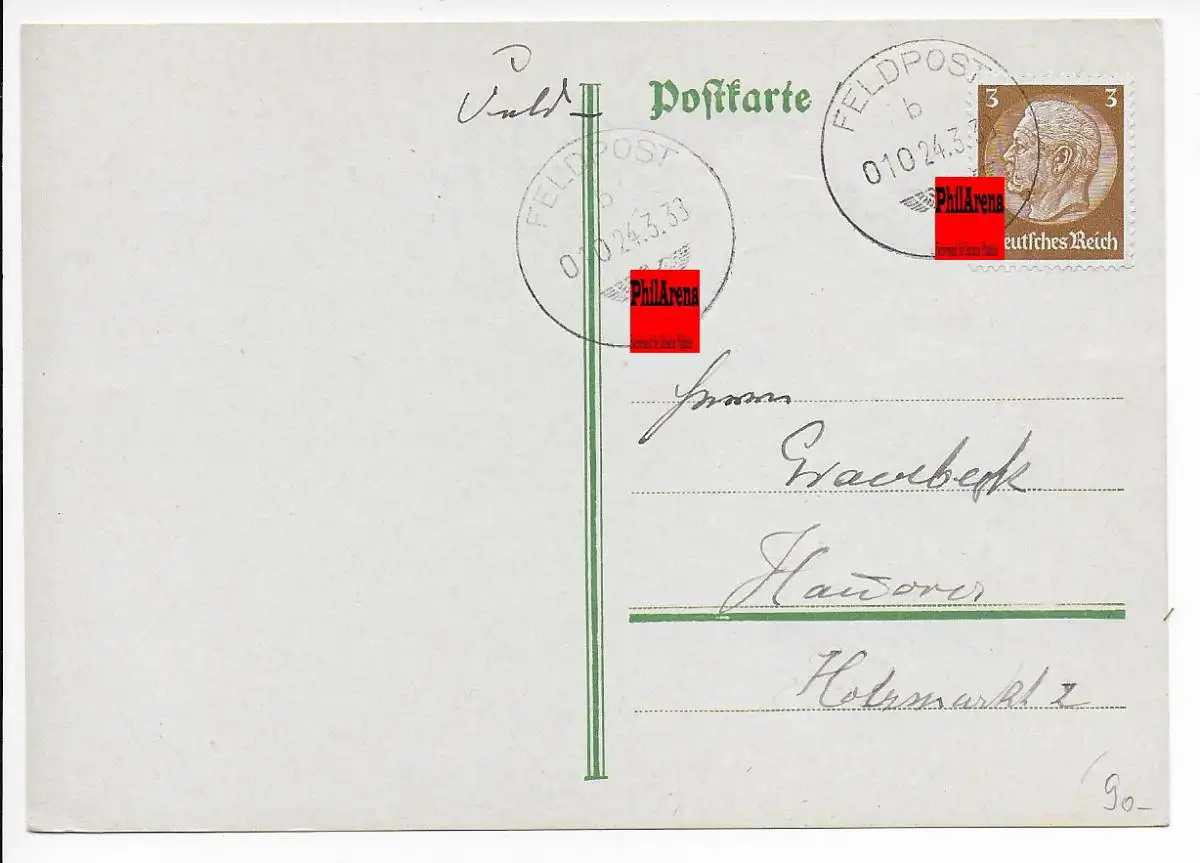 Postkarte
FELDPOST
b
010 24.3.3
3 3
PhilArena
eutsches Reich
FELDPOST
b
010 24.3.33
PhilArena
Herrn
Hannover
Holzmarkt 2
90-